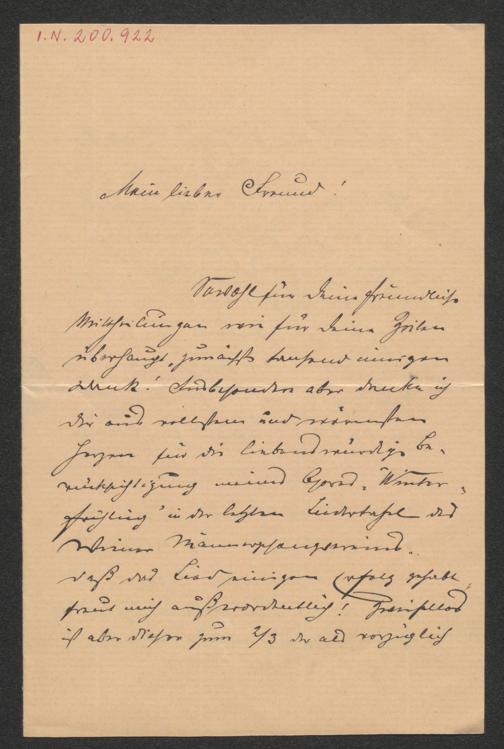 I.N. 200.922
Mein lieber Freund!
Sowohl für Deine freundliche
Mittheilungen wie für Deine Zeilen
überhaupt, zunächst tausend innigen
Dank! Insbesondere aber danke ich
Dir aus vollstem und wärmsten
Herzen für die liebenswürdige Be-
rücksichtigung meines Chores "Winter-
frühling" in der letzten Liedertafel des
Wiener Männergesangvereins.
Daß das Lied einigen Erfolg gehabt,
freut mich außerordentlich! Zweifellos
ist aber dieser zum 2/3 der als vorzüglich